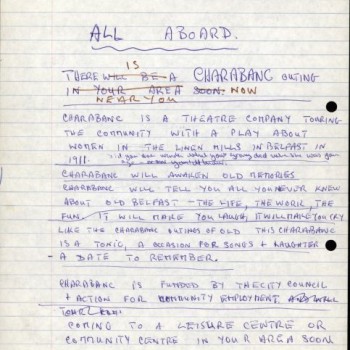 ALL ABOARD.
IS
THERE WILL BE A CHARABANC OUTING
IN YOUR AREA SOON NOW
NEAR YOU
CHARABANC IS A THEATRE COMPANY TOURING
THE COMMUNITY WITH A PLAY ABOUT
WOMEN IN THE LINEN MILLS IN BELFAST IN
1911.
CHARABANC WILL AWAKEN OLD MEMORIES
CHARABANC WILL TELL YOU ALL YOU NEVER KNEW
ABOUT OLD BELFAST - THE LIFE, THE WORK, THE
FUN. IT WILL MAKE YOU LAUGH, IT WILL MAKE YOU CRY
LIKE THE CHARABANC OUTINGS OF OLD THIS CHARABANC
IS A TONIC, A OCCASION FOR SONGS + LAUGHTER
- A DATE TO REMEMBER.
CHARABANC IS FUNDED BY THE CITY COUNCIL
+ ACTION FOR COMMUNITY EMPLOYMENT AND WILL
COMING TO A LEISURE CENTRE OR
COMMUNITY CENTRE IN YOUR AREA SOON